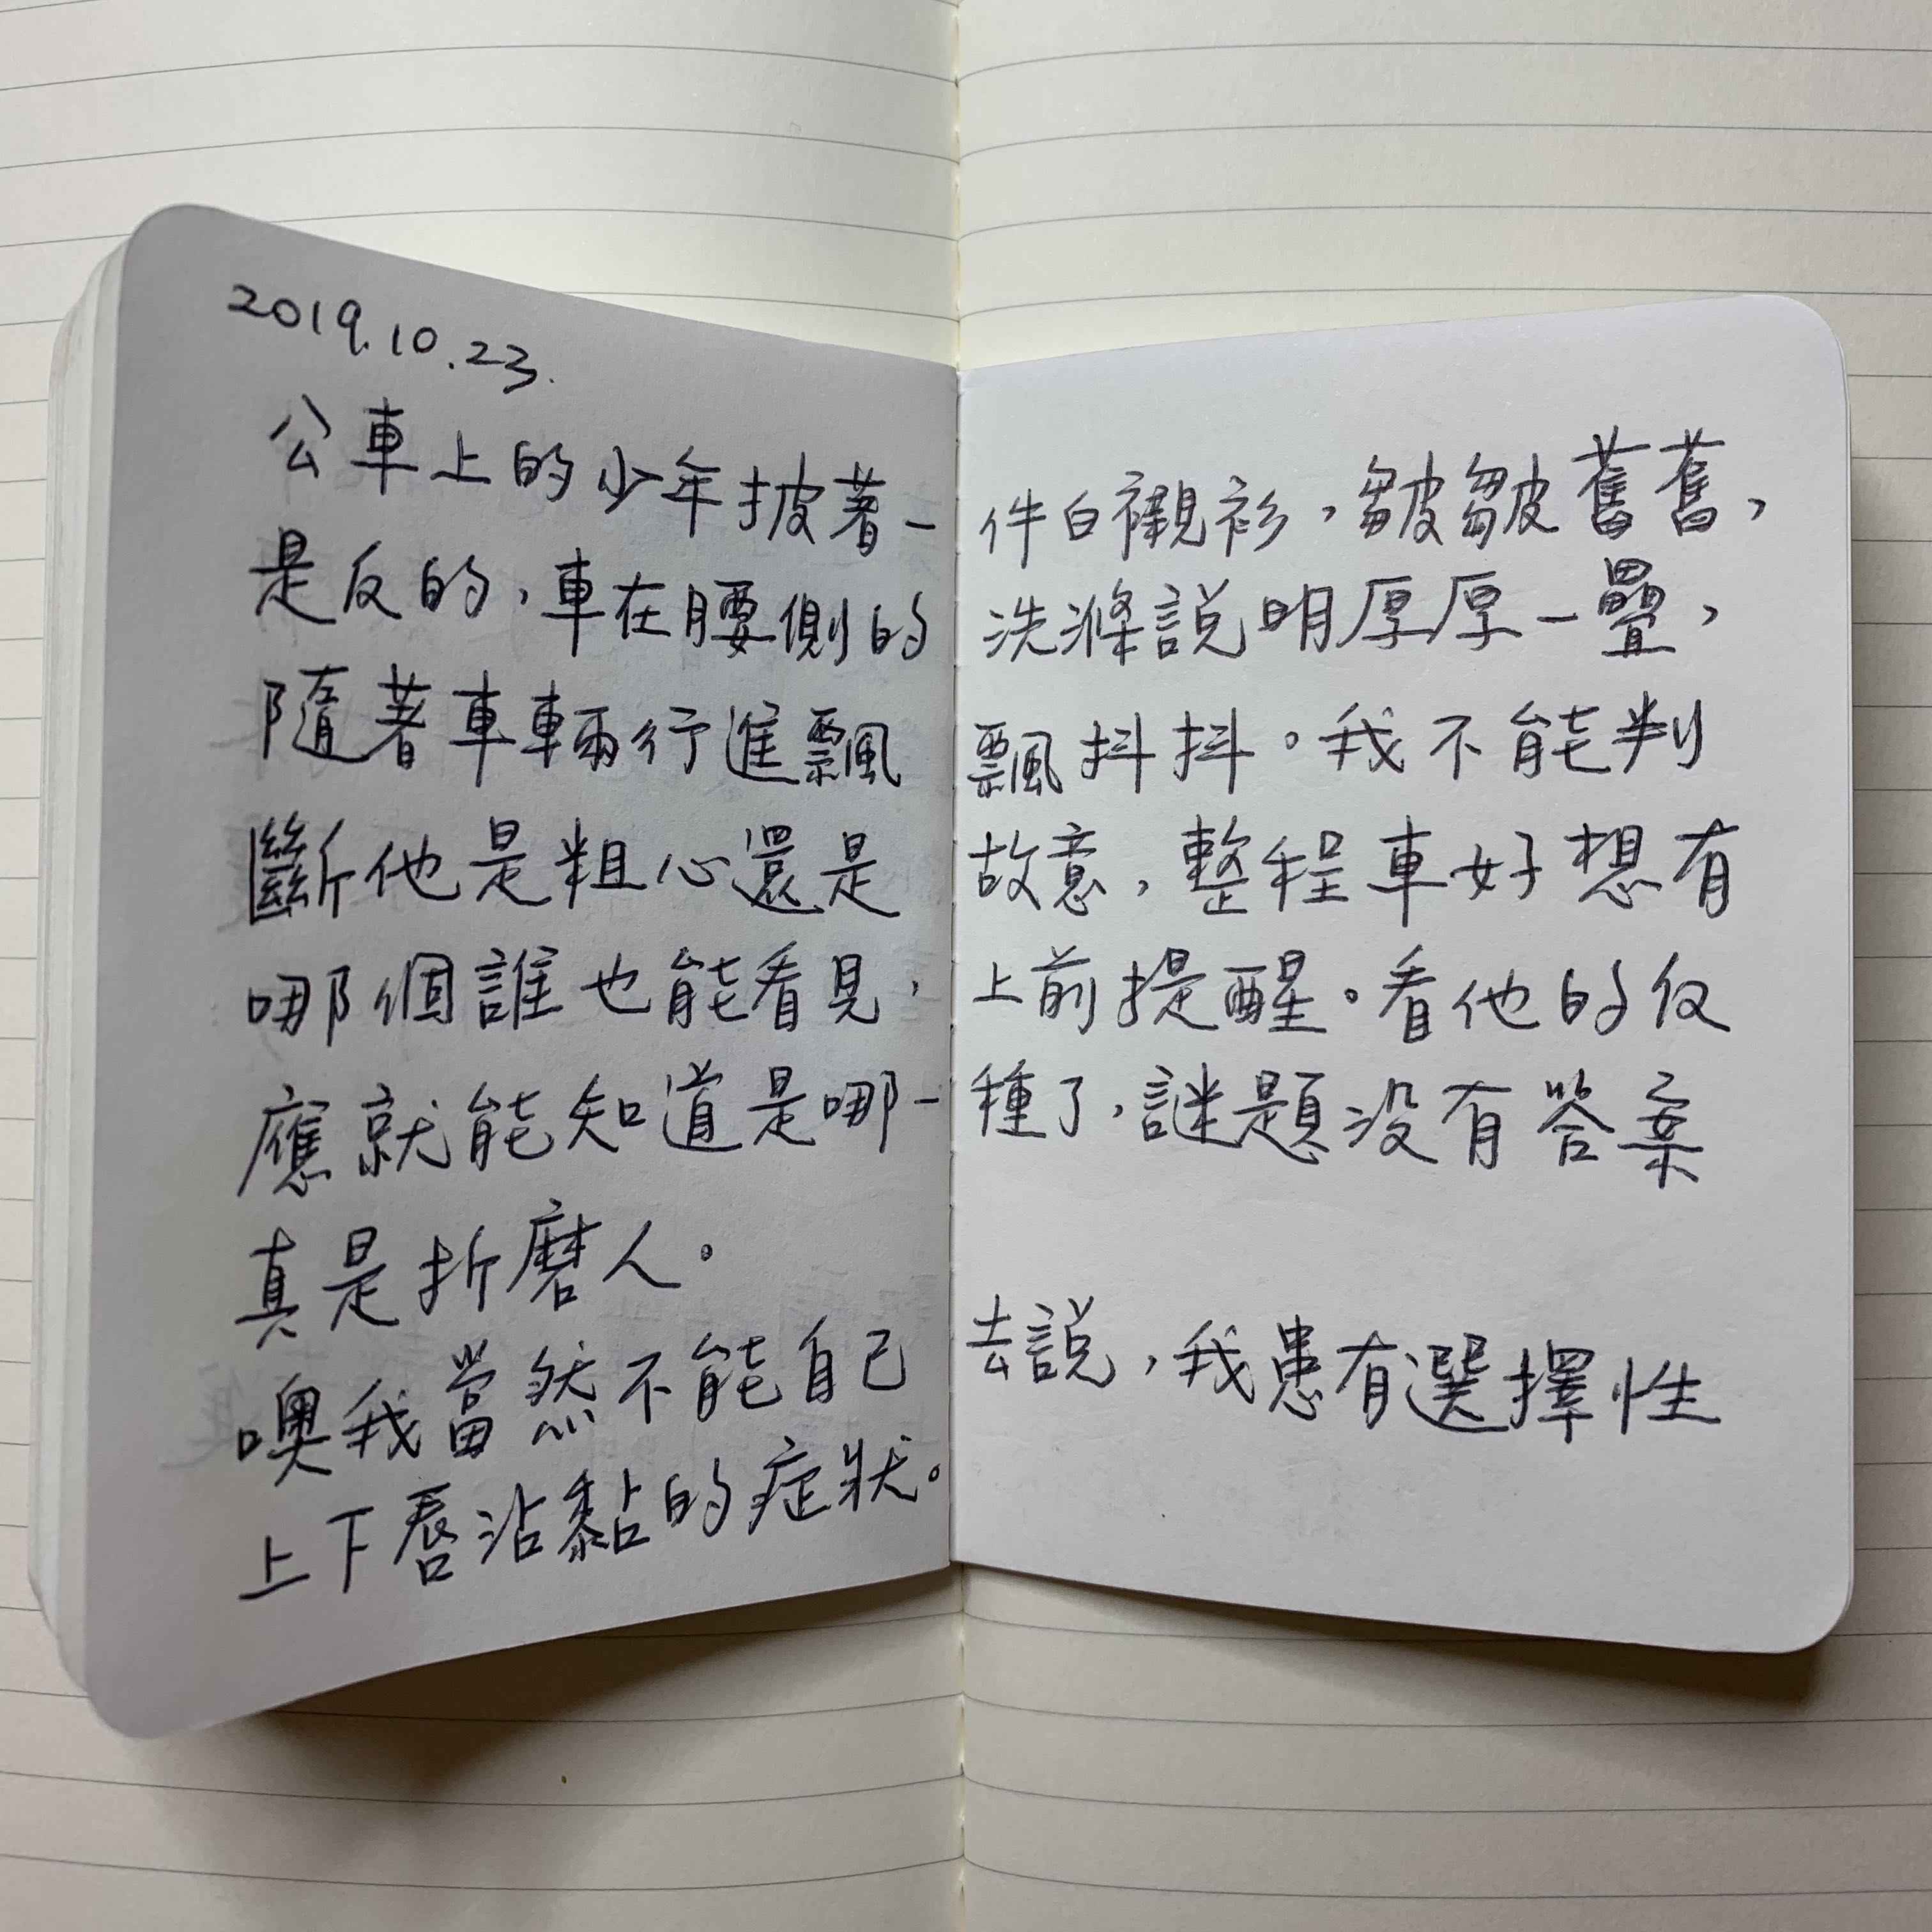 2019.10.23.
公車上的少年披著一件白襯衫，皺皺舊舊，
是反的，車在腰側的洗滌説明厚厚一疊，
隨著車輛行進飄飄抖抖。我不能判
斷他是粗心還是故意，整程車好想有
哪個誰也能看見，上前提醒。看他的反
應就能知道是哪一種了，謎題没有答案
真是折磨人。
噢我當然不能自己去説，我患有選擇性
上下唇沾黏的症狀。